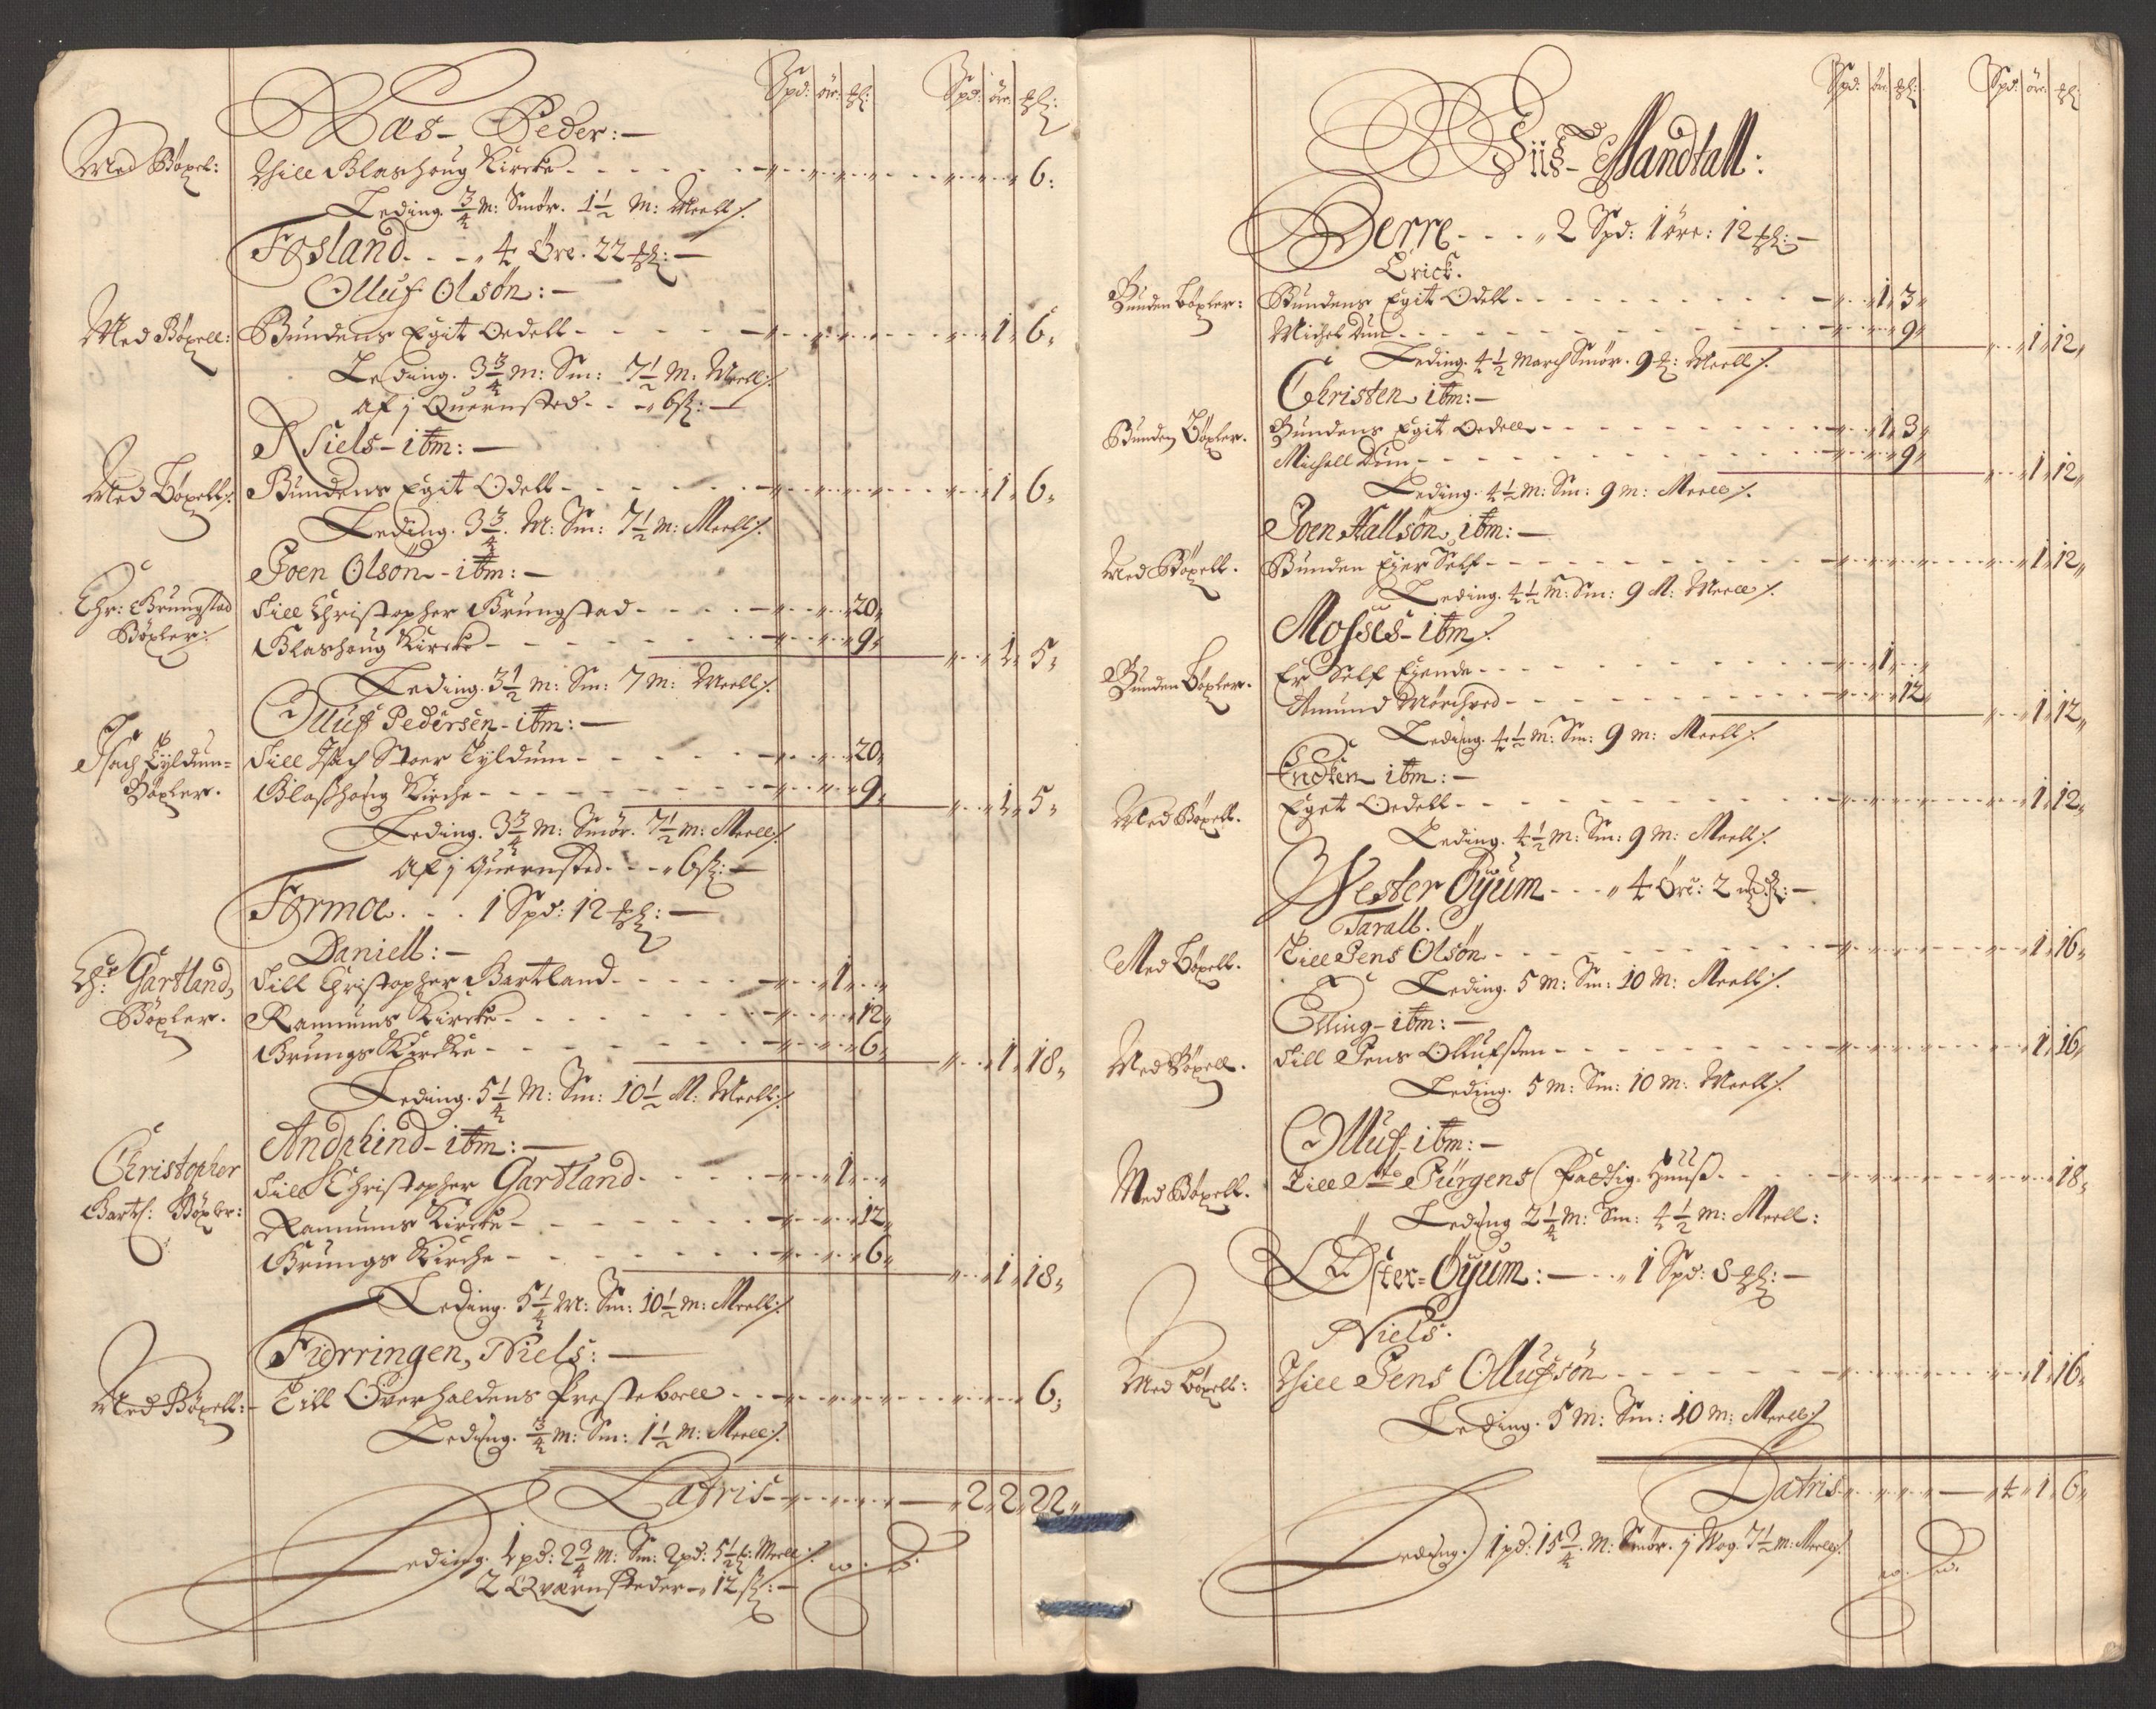 Spd: ör: ßl: Spd: ör: ßl:
Aas- Peder:-
Med Böxel: Thill Blashoug Kircke - - - 6:
Leding. 3/4 m: Smör. 1 1/2 m: Meell:/.
Fosland. - - 4 Öre. 22 ßl:-
Olluf Olsön:-
Med Böxell: Bundens Egit Oedell - - - 1 6
Leding. 3 3/4 m: Sm: 7 1/2 m: Meell:/.
Af j Quernsted - - 6 ß:-
Niels - itm:-
Med Böxell:/. Bundens Egit Odell - - - 1 6
Leding. 3 3/4 M: Sm: 7 1/2 m: Meell:/.
Joen Olsön - itm:-
Chr: Brungstad Till Christopher Brungstad - - - 20
Böxler:/. Blashoug Kircke - - - 9 1 5
Leding. 3 1/2 m: Sm: 7 m: Meell:/.
Olluf Pedersen - itm:-
Isach Tyldum= Till Isach Stoer Tyldum - - - 20
Böxler. Blasshoug Kirche - - - 9 1 5
Leding. 3 3/4 m: Smör. 7 1/2 m: Meell:/.
Af j Quernsted - - 6 ß:-
Formoe. - - 1 Spd: 12 ßl:-
Daniell:-
Chr: Gartland, Till Christopher Gartland - - - 1
Böxler. Ranums Kircke - - - 12
Brungs Kircke - - - 6 1 18
Leding. 5 1/4 M: Sm: 10 1/2 M: Meell:/.
Andrhind - itm:-
Christopher Till Christopher Gartland - - - 1
Gartl: Böxler: Ranums Kircke - - - 12
Brungs Kirche - - - 6 1 18
Leding. 5 1/4 M: Sm: 10 1/2 m: Meell:/.
Fierringen, Niels:-
Med Böxell:- Till Overhaldens Presteboell - - - 6
Leding. 3/4 m: Sm: 1 1/2 m: Meell:/.
Latris - - - 2 2 22
Leding. 1 pd: 2 3/4 m: Sm: 2 pd: 5 1/2 m: Meell:/.
2 Qværnsteder - 12 ß:-
Spd: ör: ßl: Spd: ör: ßl:
Fiis- Mandtall:
Derre - - - 2 Spd: 1 öre: 12 ßl:-
Erick.
Bunden Böxler: Bundens Egit Odell - - - 1 3
Michel Dun - - - 9 1 12
Leding. 4 1/2 March Smör. 9 m: Meell:/.
Christen itm:-
Bunden Böxler. Bundens Egit Oedell - - - 1 3
Michell Dun - - - 9 1 12
Leding. 4 1/2 m: Sm: 9 m: Meell:/.
Joen Hallsön, itm:-
Med Böxell. Bunden Ejer Self - - - 1 12
Leding. 4 1/2 m: Sm: 9 M: Meell:/.
Mosses - itm:/.
Bunden Böxler. Er Self Ejende - - - 1
Amund Mörchved - - - 12 1 12
Leding. 4 1/2 m: Sm: 9 m: Meell:/.
Endten itm:-
Med Böxell. Eget Oedell - - - 1 12
Leding. 4 1/2 m: Sm: 9 m: Meell:/.
Wester Öyum - - - 4 Öre: 2 ßl:-
Tarall.
Med Böxell. Till Jens Olsön - - - 1 16
Leding. 5 m: Sm: 10 M: Meell:/.
Elling - itm:-
Med Böxell. Till Jens Ollufsen - - - 1 16
Leding. 5 m: Sm: 10 m: Meell:/.
Olluf - itm:-
Med Böxell. Till Jürgens Fattig-Huuss - - - 18
Leding 2 1/4 m: Sm: 4 1/2 m: Meell:
Öster=Öyum:- - - 1 Spd: 8 ßl:-
Niels.
Med Böxell: Thill Jens Ollufsön - - - 1 16
Leding. 5 m: Sm: 10 m: Meell:/.
Latris - - - 4 1 6
Leding. 1 pd: 15 3/4 M: Smör. j Wog. 7 1/2 m: Meell:/.